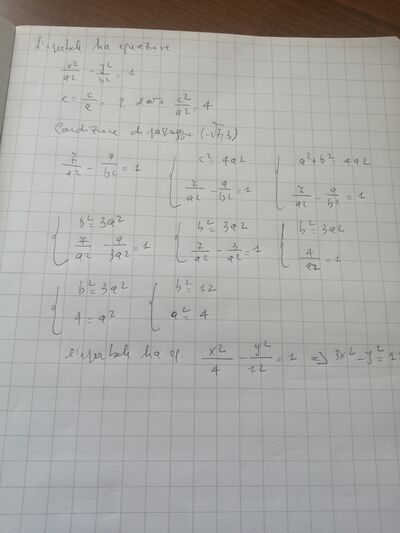 L'iperbole ha equazione
x²/a² - y²/b² = 1
e = c/a = 2 c²/a² = 4
Condizione di passaggio (-√7, 3)
7/a² - 9/b² = 1 { c² = 4a² { a² + b² = 4a²
7/a² - 9/b² = 1 7/a² - 9/b² = 1
{ b² = 3a² { b² = 3a² { b² = 3a²
7/a² - 9/3a² = 1 7/a² - 3/a² = 1 4/a² = 1
{ b² = 3a² { b² = 12
4 = a² a² = 4
L'iperbole ha eq. x²/4 - y²/12 = 1 => 3x² - y² = 1